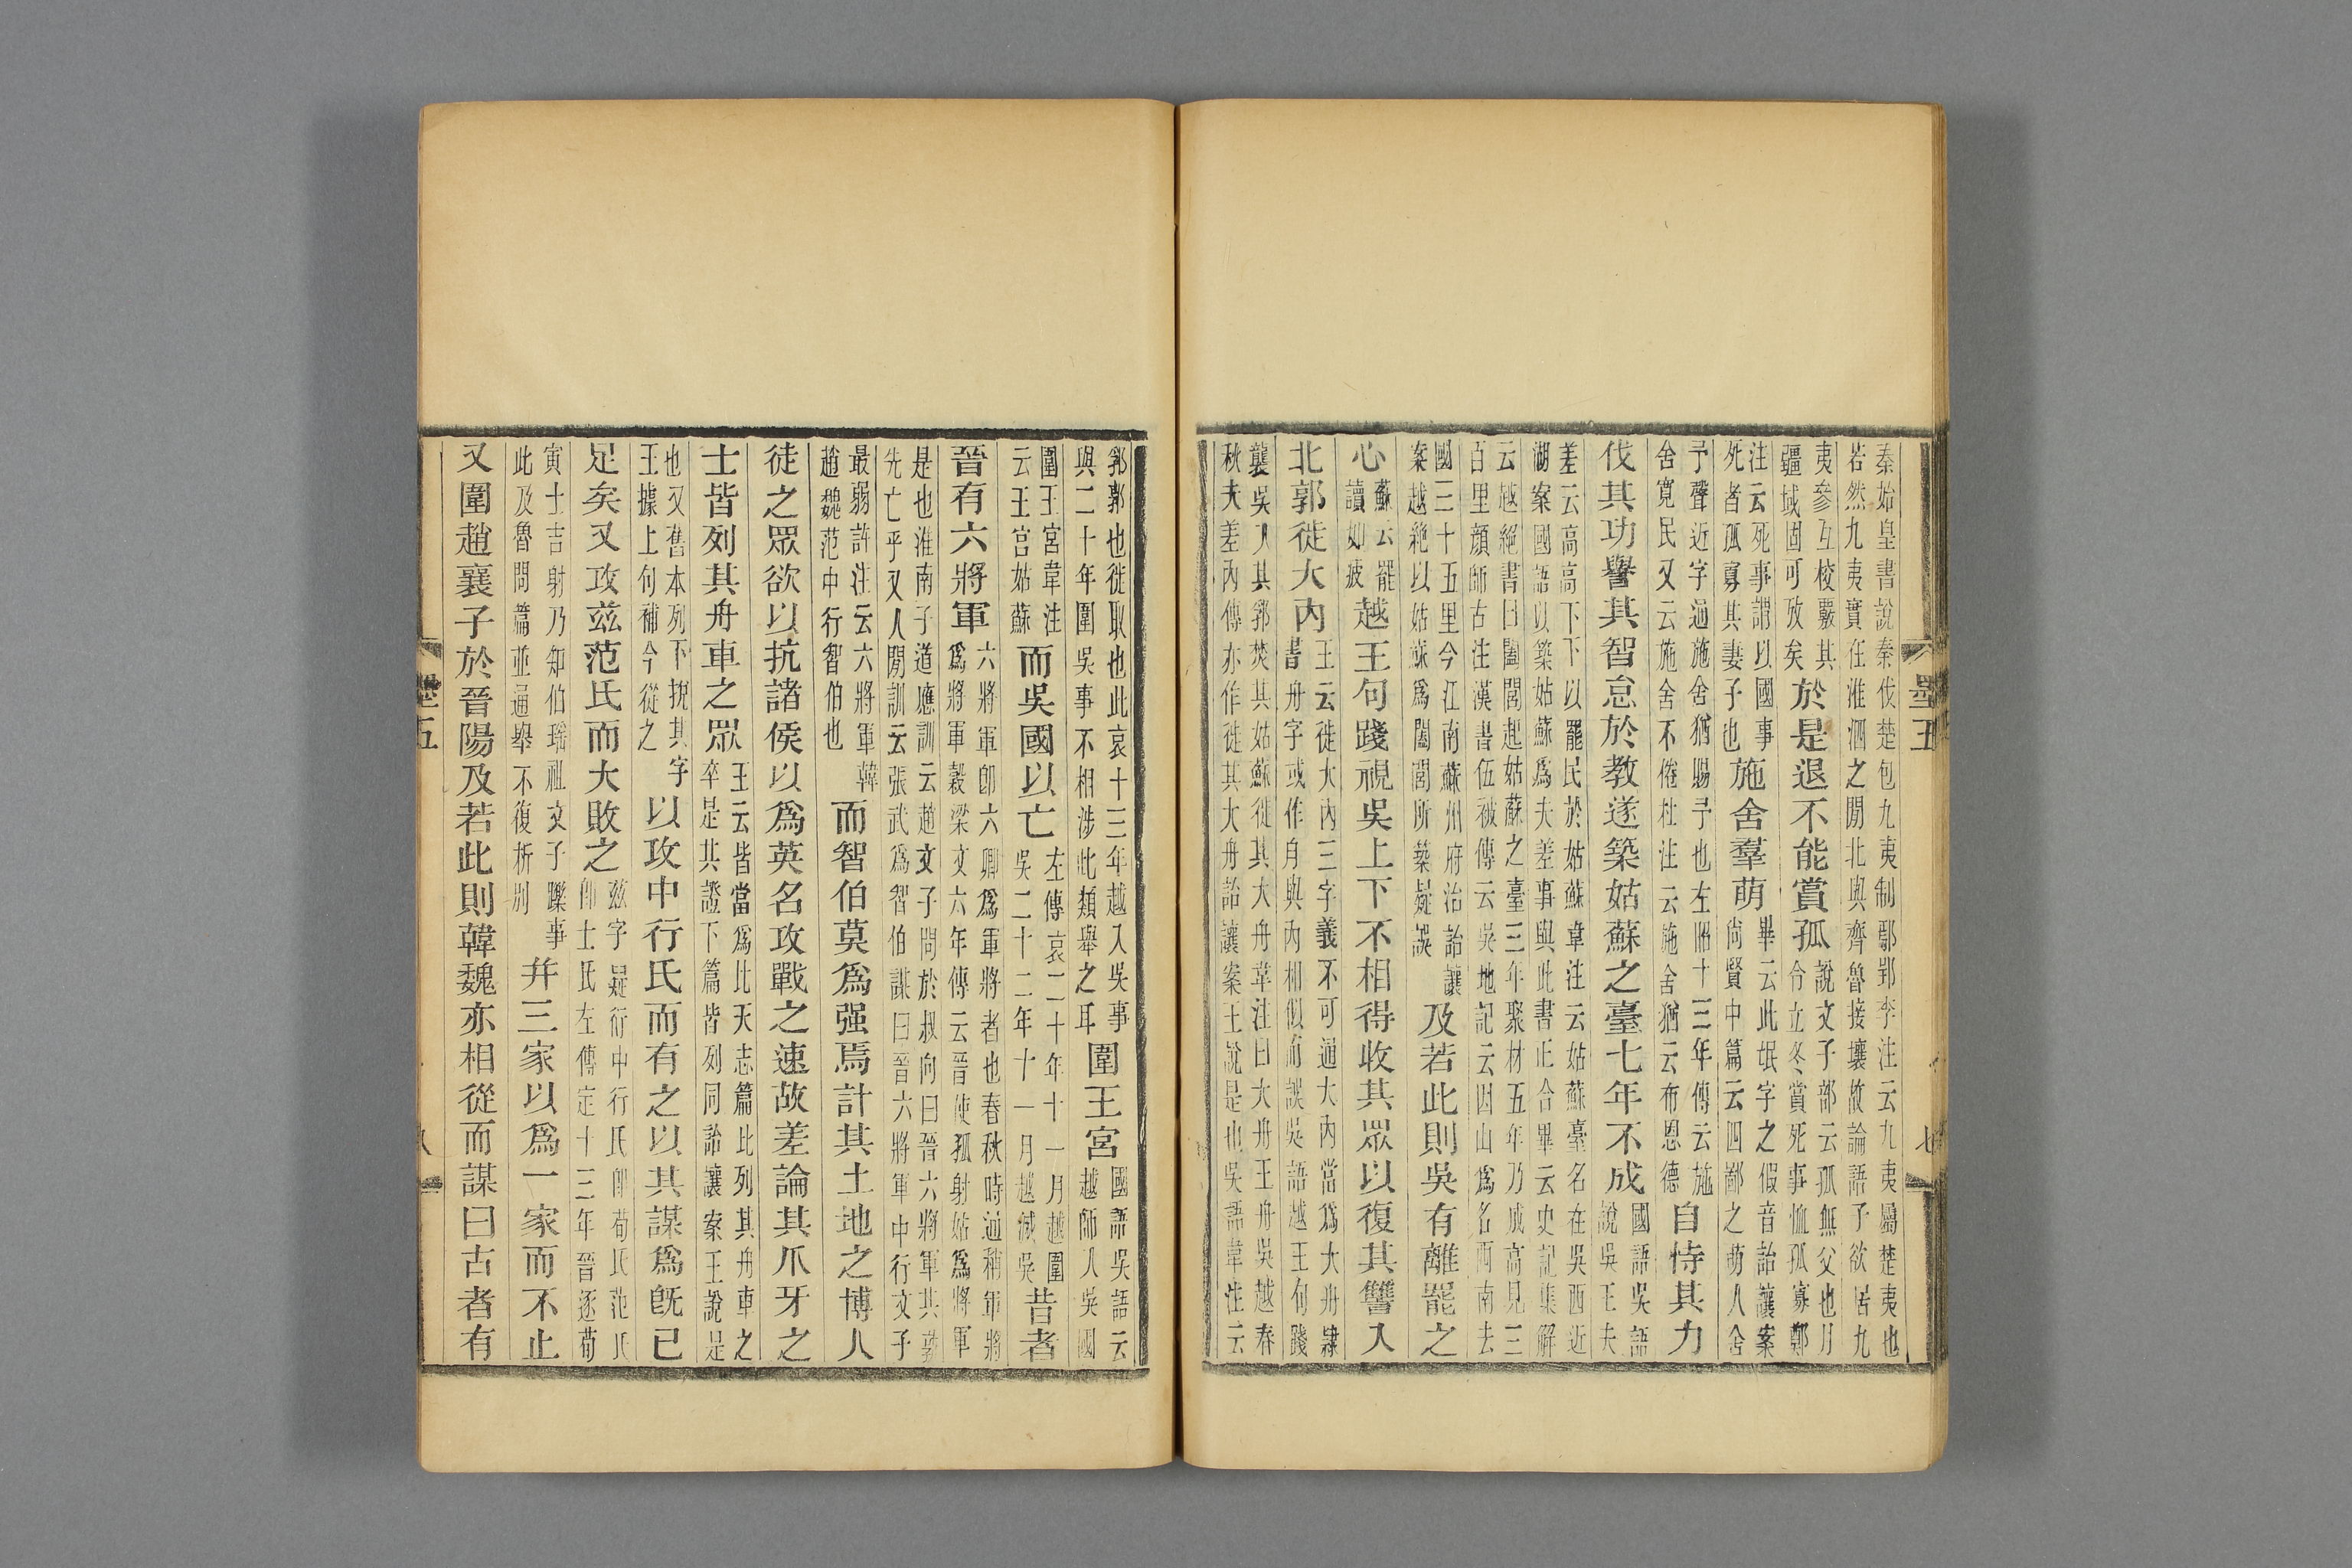 秦始皇書說秦伐楚包九夷制鄢郢李注云九夷屬楚夷也
若然九夷實在淮泗之閒北與齊魯接壤故論語子欲居九
夷參互校覈其
疆域固可攷矣
於是退不能賞孤
說文子部云孤無父也月
令立冬賞死事恤孤寡鄭
注云死事謂以國事
死者孤寡其妻子也
施舍羣萌
畢云此氓字之假音詒讓案
尙賢中篇云四鄙之萌人舍
予聲近字通施舍猶賜予也左昭十三年傳云施
舍寬民又云施舍不倦杜注云施舍猶云布恩德
自恃其力
伐其功譽其智怠於教遂築姑蘇之臺七年不成
國語吳語
說吳王夫
差云高高下下以罷民於姑蘇韋注云姑蘇臺名在吳西近
湖案國語以築姑蘇爲夫差事與此書正合畢云史記集解
云越絕書曰闔閭起姑蘇之臺三年聚材五年乃成高見三
百里顏師古注漢書伍被傳云吳地記云因山爲名西南去
國三十五里今江南蘇州府治詒讓
案越絕以姑蘇爲闔閭所築疑誤
及若此則吳有離罷之
心
蘇云罷
讀如疲
越王句踐視吳上下不相得收其眾以復其讐入
北郭徙大內
王云徙大內三字義不可通大內當爲大舟隸
書舟字或作月與內相似而誤吳語越王句踐
襲吳入其郛焚其姑蘇徙其大舟韋注曰大舟王舟吳越春
秋夫差內傳亦作徙其大舟詒讓案王說是也吳語韋注云
墨五
七
郛郭也徙取也此哀十三年越入吳事
與二十年圍吳事不相涉此類舉之耳
圍王宮
國語吳語云
越師入吳國
圍王宮韋注
云王宮姑蘇
而吳國以亡
左傳哀二十年十一月越圍
吳二十二年十一月越滅吳
昔者
晉有六將軍
六將軍卽六卿爲軍將者也春秋時通稱軍將
爲將軍穀梁文六年傳云晉使狐射姑爲將軍
是也淮南子道應訓云趙文子問於叔向曰晉六將軍其孰
先亡乎又人閒訓云張武爲智伯謀曰晉六將軍中行文子
最弱許注云六將軍韓
趙魏范中行智伯也
而智伯莫爲强焉計其土地之博人
徒之眾欲以抗諸侯以爲英名攻戰之速故差論其爪牙之
士皆列其舟車之眾
王云皆當爲比天志篇比列其舟車之
卒是其證下篇皆列同詒讓案王說是
也又舊本列下挩其字
王據上句補今從之
以攻中行氏而有之以其謀爲旣已
足矣又攻兹范氏而大敗之
兹字疑衍中行氏卽荀氏范氏
卽士氏左傳定十三年晉逐荀
寅士吉射乃知伯瑤祖文子躒事
此及魯問篇並通舉不復析別
幷三家以爲一家而不止
又圍趙襄子於晉陽及若此則韓魏亦相從而謀曰古者有
墨五
八